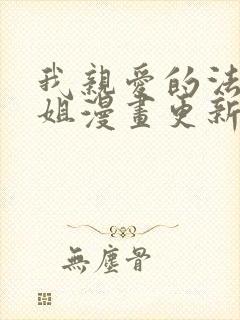 我親愛的法
姐漫畫更新
無塵骨